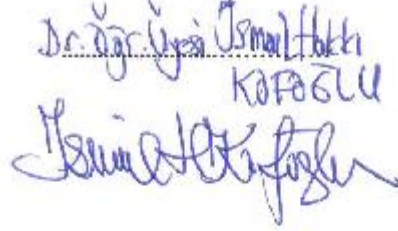 Dr. Öğr. Üyesi İsmail Hakkı
KOFOĞLU